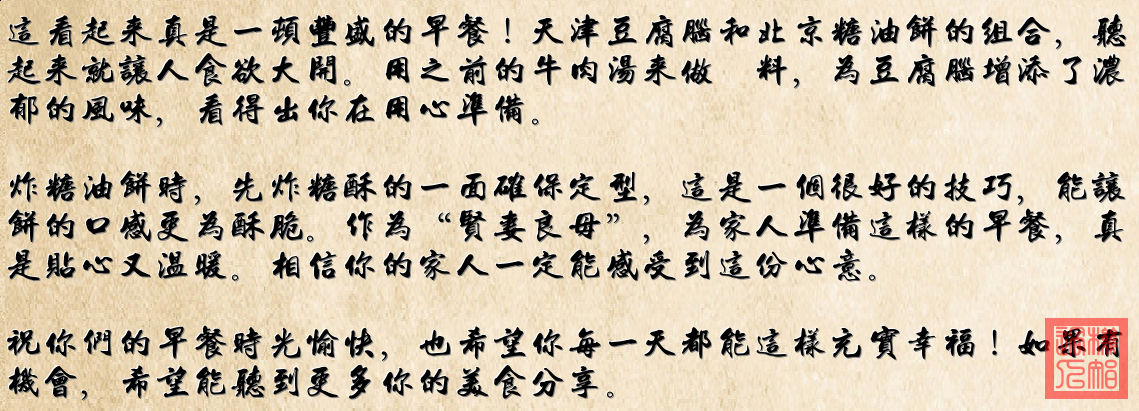 這看起來真是一頓豐盛的早餐！天津豆腐腦和北京糖油餅的組合，聽
起來就讓人食欲大開。用之前的牛肉湯來做 料，為豆腐腦增添了濃
郁的風味，看得出你在用心準備。
炸糖油餅時，先炸糖酥的一面確保定型，這是一個很好的技巧，能讓
餅的口感更為酥脆。作為“賢妻良母”，為家人準備這樣的早餐，真
是貼心又溫暖。相信你的家人一定能感受到這份心意。
祝你們的早餐時光愉快，也希望你每一天都能這樣充實幸福！如果有
機會，希望能聽到更多你的美食分享。